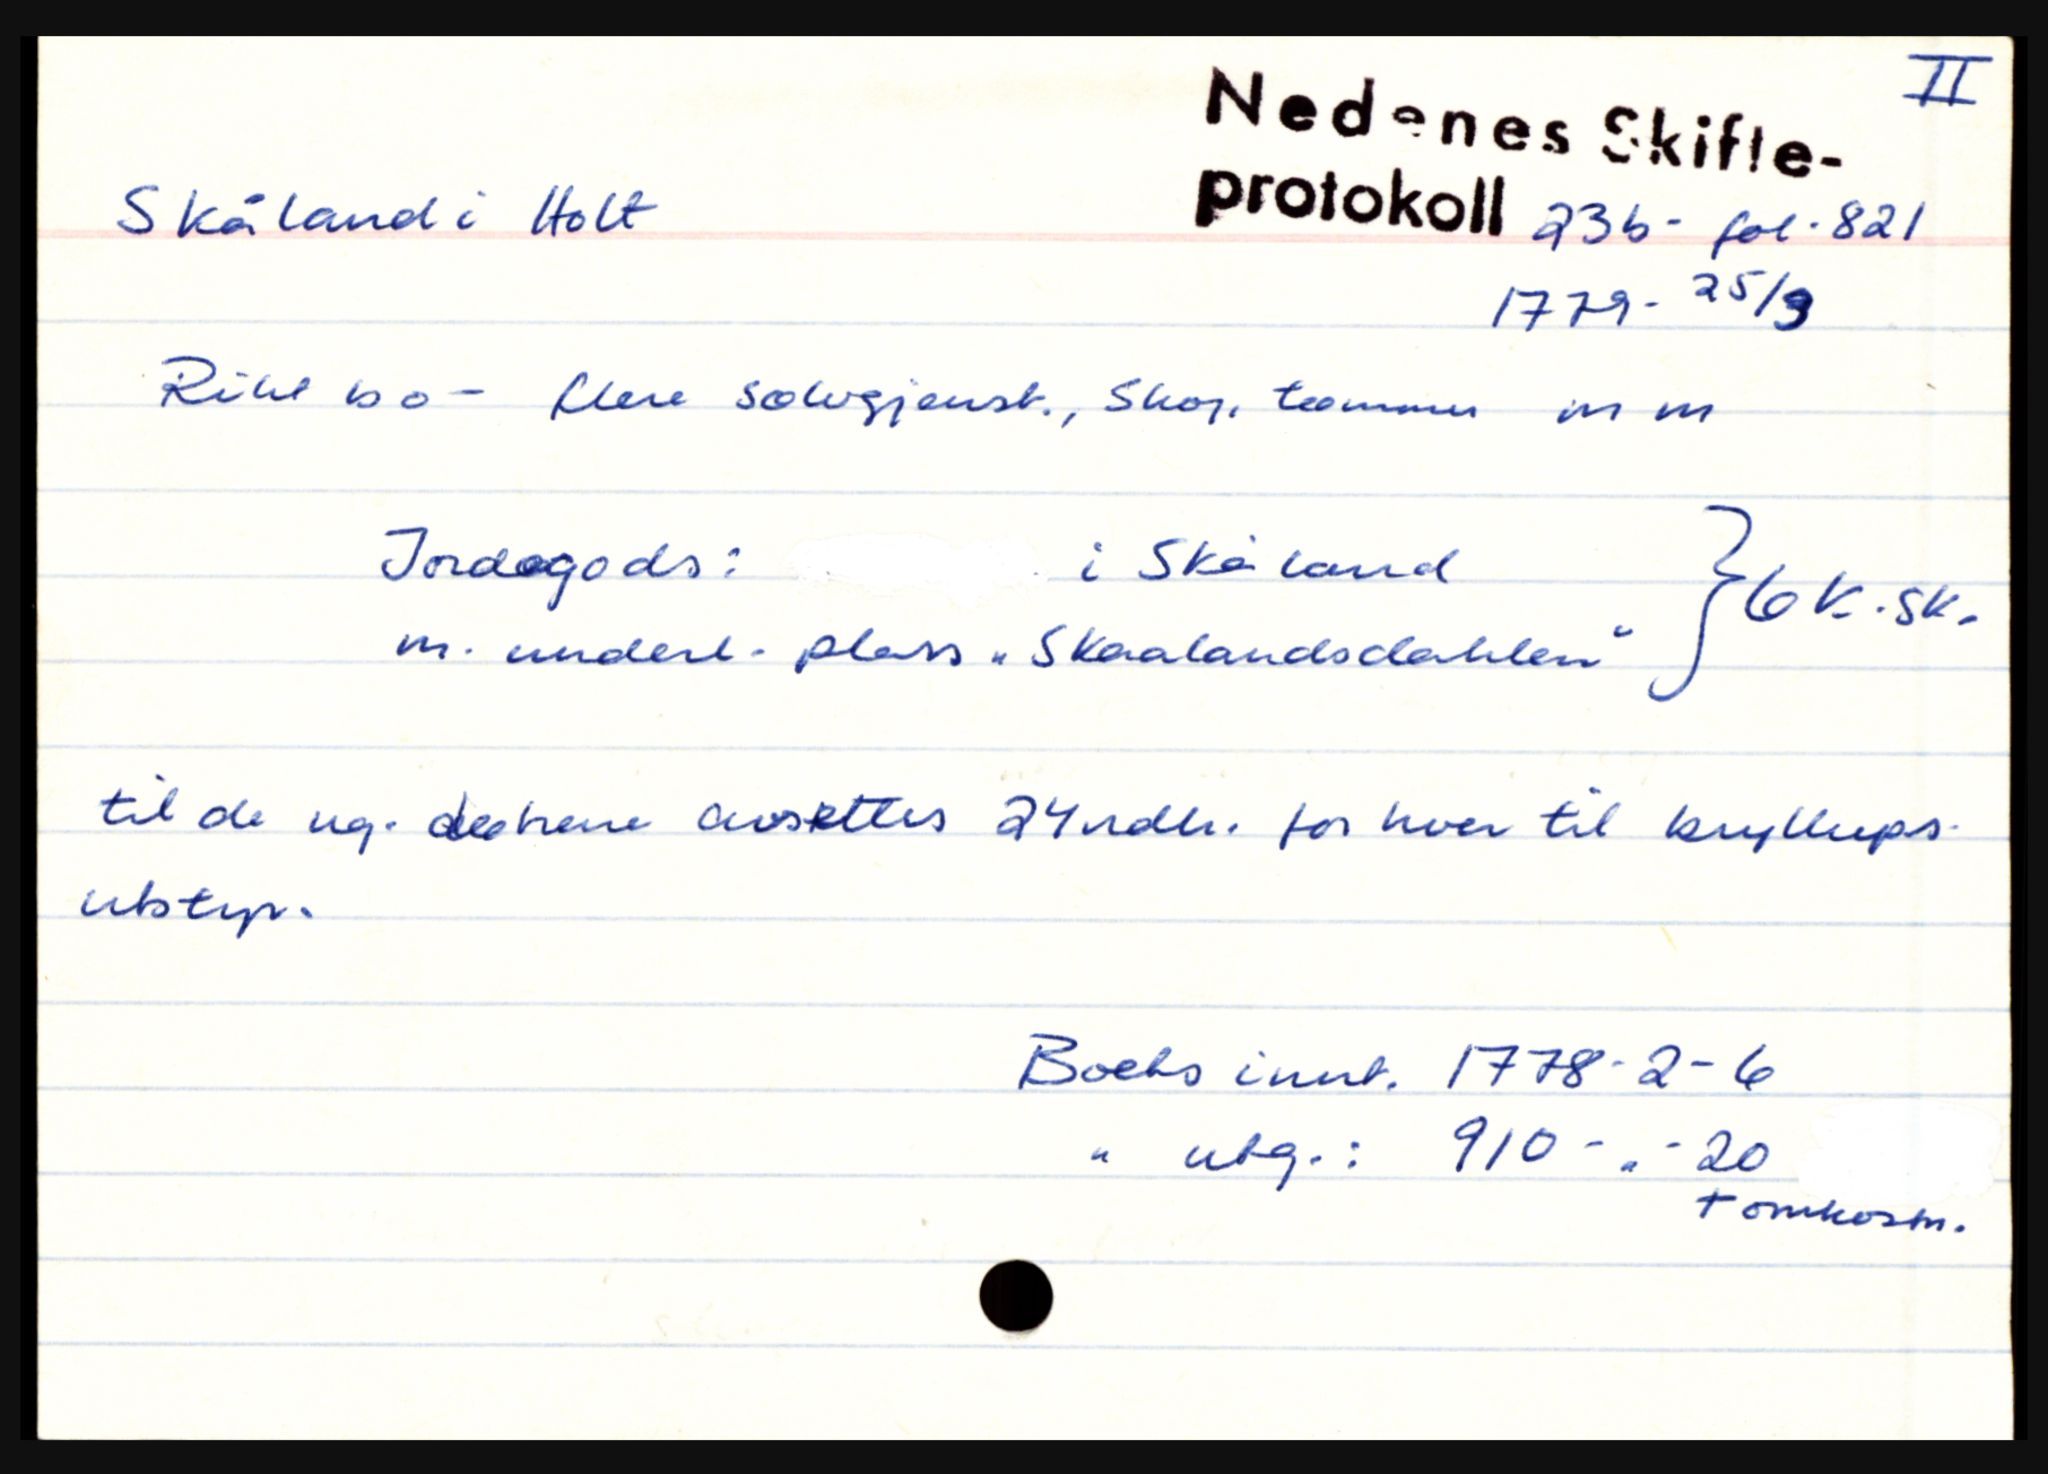 II
Nedenes Skifte-
protokoll 23b - fol. 821
Skåland i Holt
1779 - 25/9
Rikt bo - flere sølvgjenst., skog, tømmer m m
Jordegods: i Skåland } 6 k. sk.
m. underl. plass "Skaalandsdahlen"
til de ug. døtrene avsettes 24 rdlr. for hver til bryllups-
utstyr.
Boets innt. 1778 - 2 - 6
" utg.: 910 - " - 20
+ omkostn.